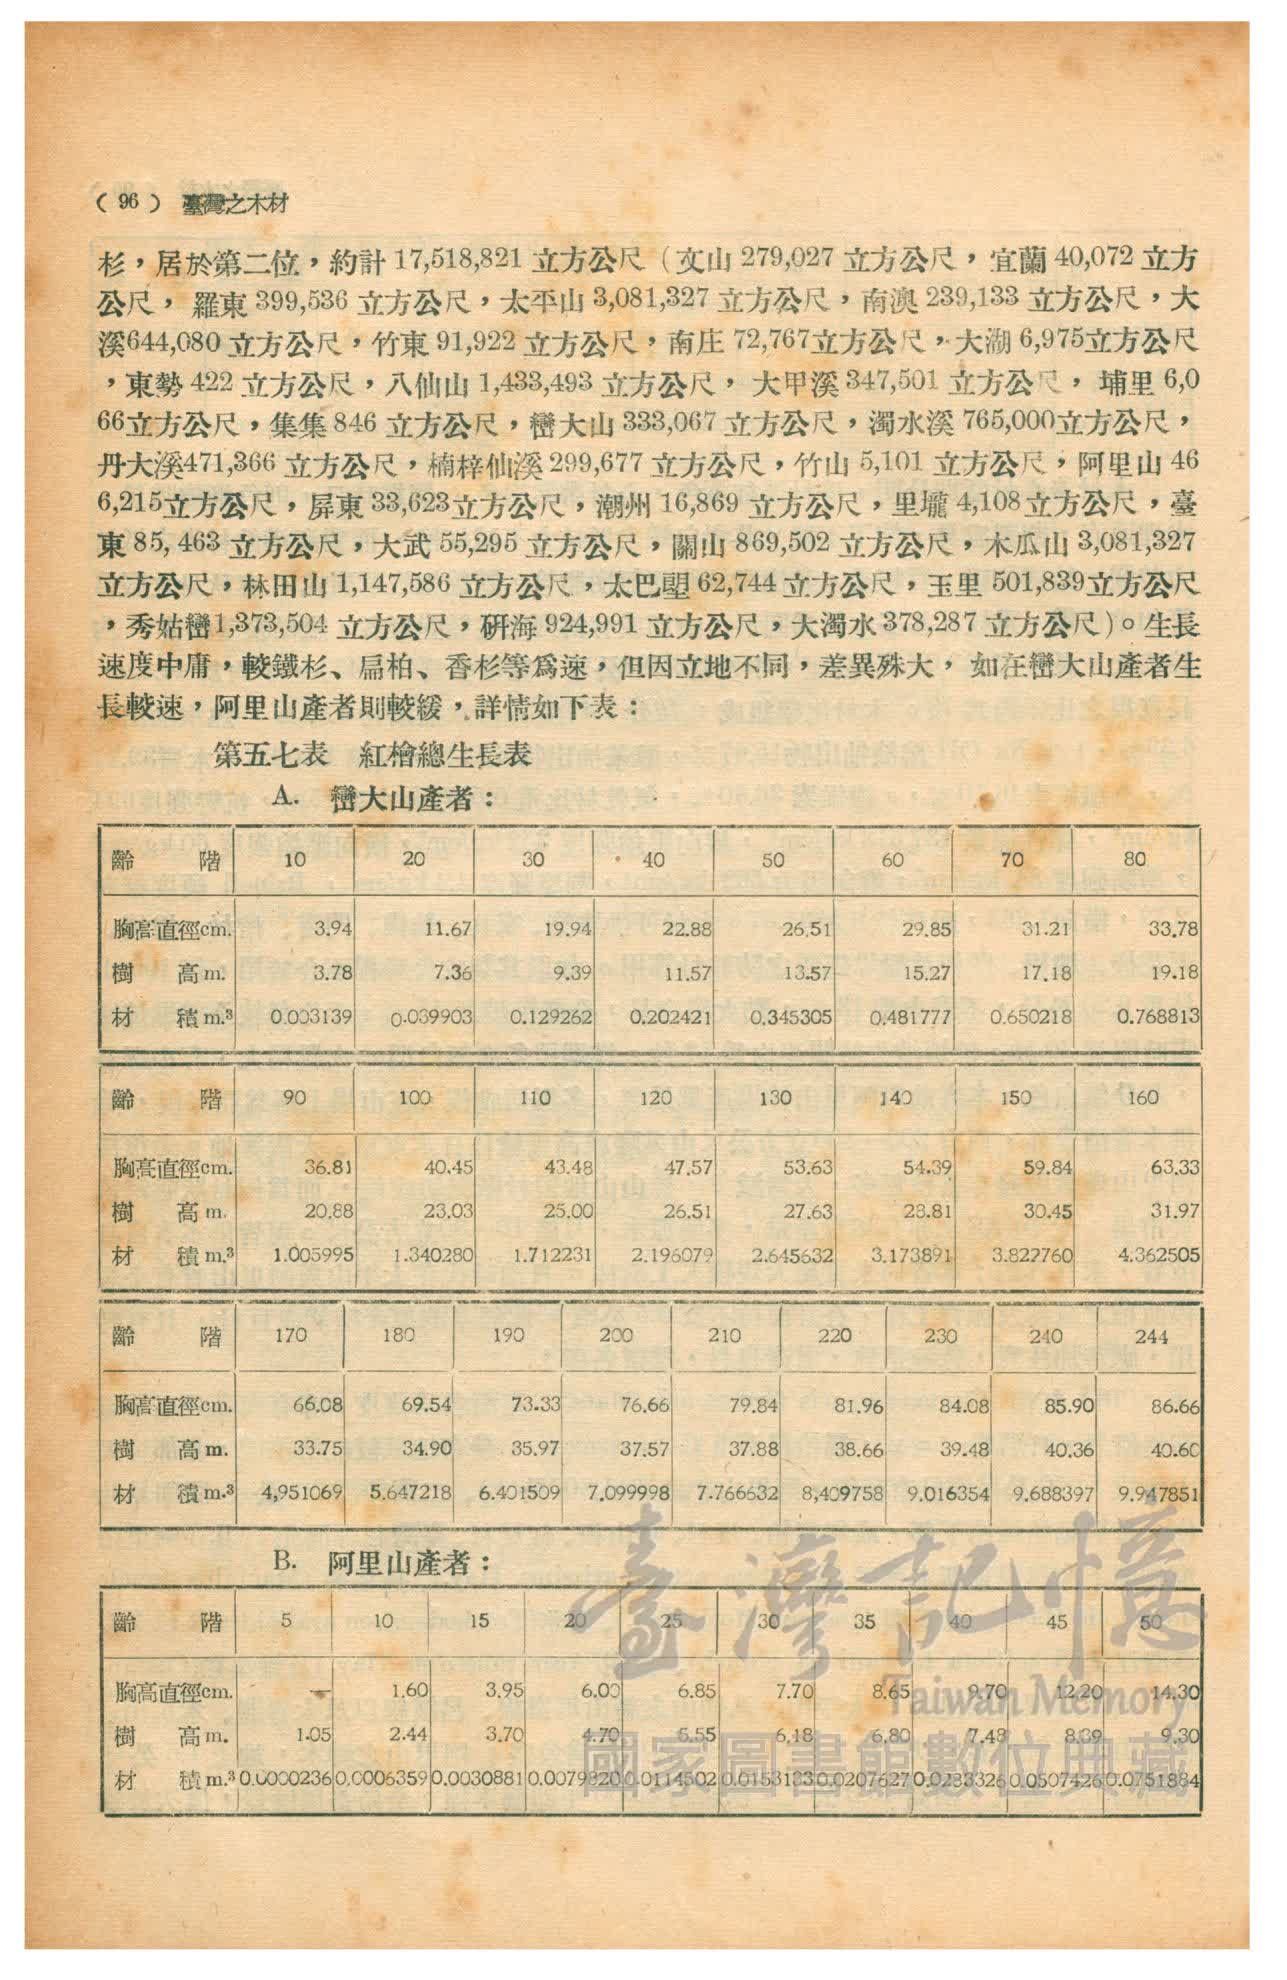 ( 96 ) 臺灣之木材
杉，居於第二位，約計 17,518,821 立方公尺（文山 279,027 立方公尺，宜蘭 40,072 立方
公尺，羅東 399,536 立方公尺，太平山 3,081,327 立方公尺，南澳 239,133 立方公尺，大
溪644,080 立方公尺，竹東 91,922 立方公尺，南庄 72,767立方公尺，大湖 6,975立方公尺
，東勢 422 立方公尺，八仙山 1,433,493 立方公尺，大甲溪 347,501 立方公尺，埔里 6,0
66立方公尺，集集 846 立方公尺，巒大山 333,067 立方公尺，濁水溪 765,000立方公尺，
丹大溪471,366 立方公尺，楠梓仙溪 299,677 立方公尺，竹山 5,101 立方公尺，阿里山 46
6,215立方公尺，屏東 33,623立方公尺，潮州 16,869 立方公尺，里壠 4,108立方公尺，臺
東 85, 463 立方公尺，大武 55,295 立方公尺，關山 869,502 立方公尺，木瓜山 3,081,327
立方公尺，林田山 1,147,586 立方公尺，太巴塱 62,744 立方公尺，玉里 501,839立方公尺
，秀姑巒1,373,504 立方公尺，研海 924,991 立方公尺，大濁水 378,287 立方公尺）。生長
速度中庸，較鐵杉、扁柏、香杉等爲速，但因立地不同，差異殊大，如在巒大山產者生
長較速，阿里山產者則較緩，詳情如下表：
第五七表 紅檜總生長表
A. 巒大山產者：
齡 階 10 20 30 40 50 60 70 80
胸高直徑cm. 3.94 11.67 19.94 22.88 26.51 29.85 31.21 33.78
樹 高m. 3.78 7.36 9.39 11.57 13.57 15.27 17.18 19.18
材 積m.³ 0.003139 0.039903 0.129262 0.202421 0.345305 0.481777 0.650218 0.768813
齡 階 90 100 110 120 130 140 150 160
胸高直徑cm. 36.81 40.45 43.48 47.57 53.63 54.39 59.84 63.33
樹 高m. 20.88 23.03 25.00 26.51 27.63 28.81 30.45 31.97
材 積m.³ 1.005995 1.340280 1.712231 2.196079 2.645632 3.173891 3.822760 4.362505
齡 階 170 180 190 200 210 220 230 240 244
胸高直徑cm. 66.08 69.54 73.33 76.66 79.84 81.96 84.08 85.90 86.66
樹 高m. 33.75 34.90 35.97 37.57 37.88 38.66 39.48 40.36 40.60
材 積m.³ 4,951069 5.647218 6.401509 7.099998 7.766632 8,409758 9.016354 9.688397 9.947851
B. 阿里山產者：
齡 階 5 10 15 20 25 30 35 40 45 50
胸高直徑cm. — 1.60 3.95 6.00 6.85 7.70 8.65 9.70 12.20 14.30
樹 高m. 1.05 2.44 3.70 4.70 5.55 6.18 6.80 7.48 8.39 9.30
材 積m.³ 0.0000236 0.0006359 0.0030881 0.0079820 0.0114502 0.0207627 0.0507426 0.0751884
臺灣記憶
Taiwan Memory
國家圖書館數位典藏